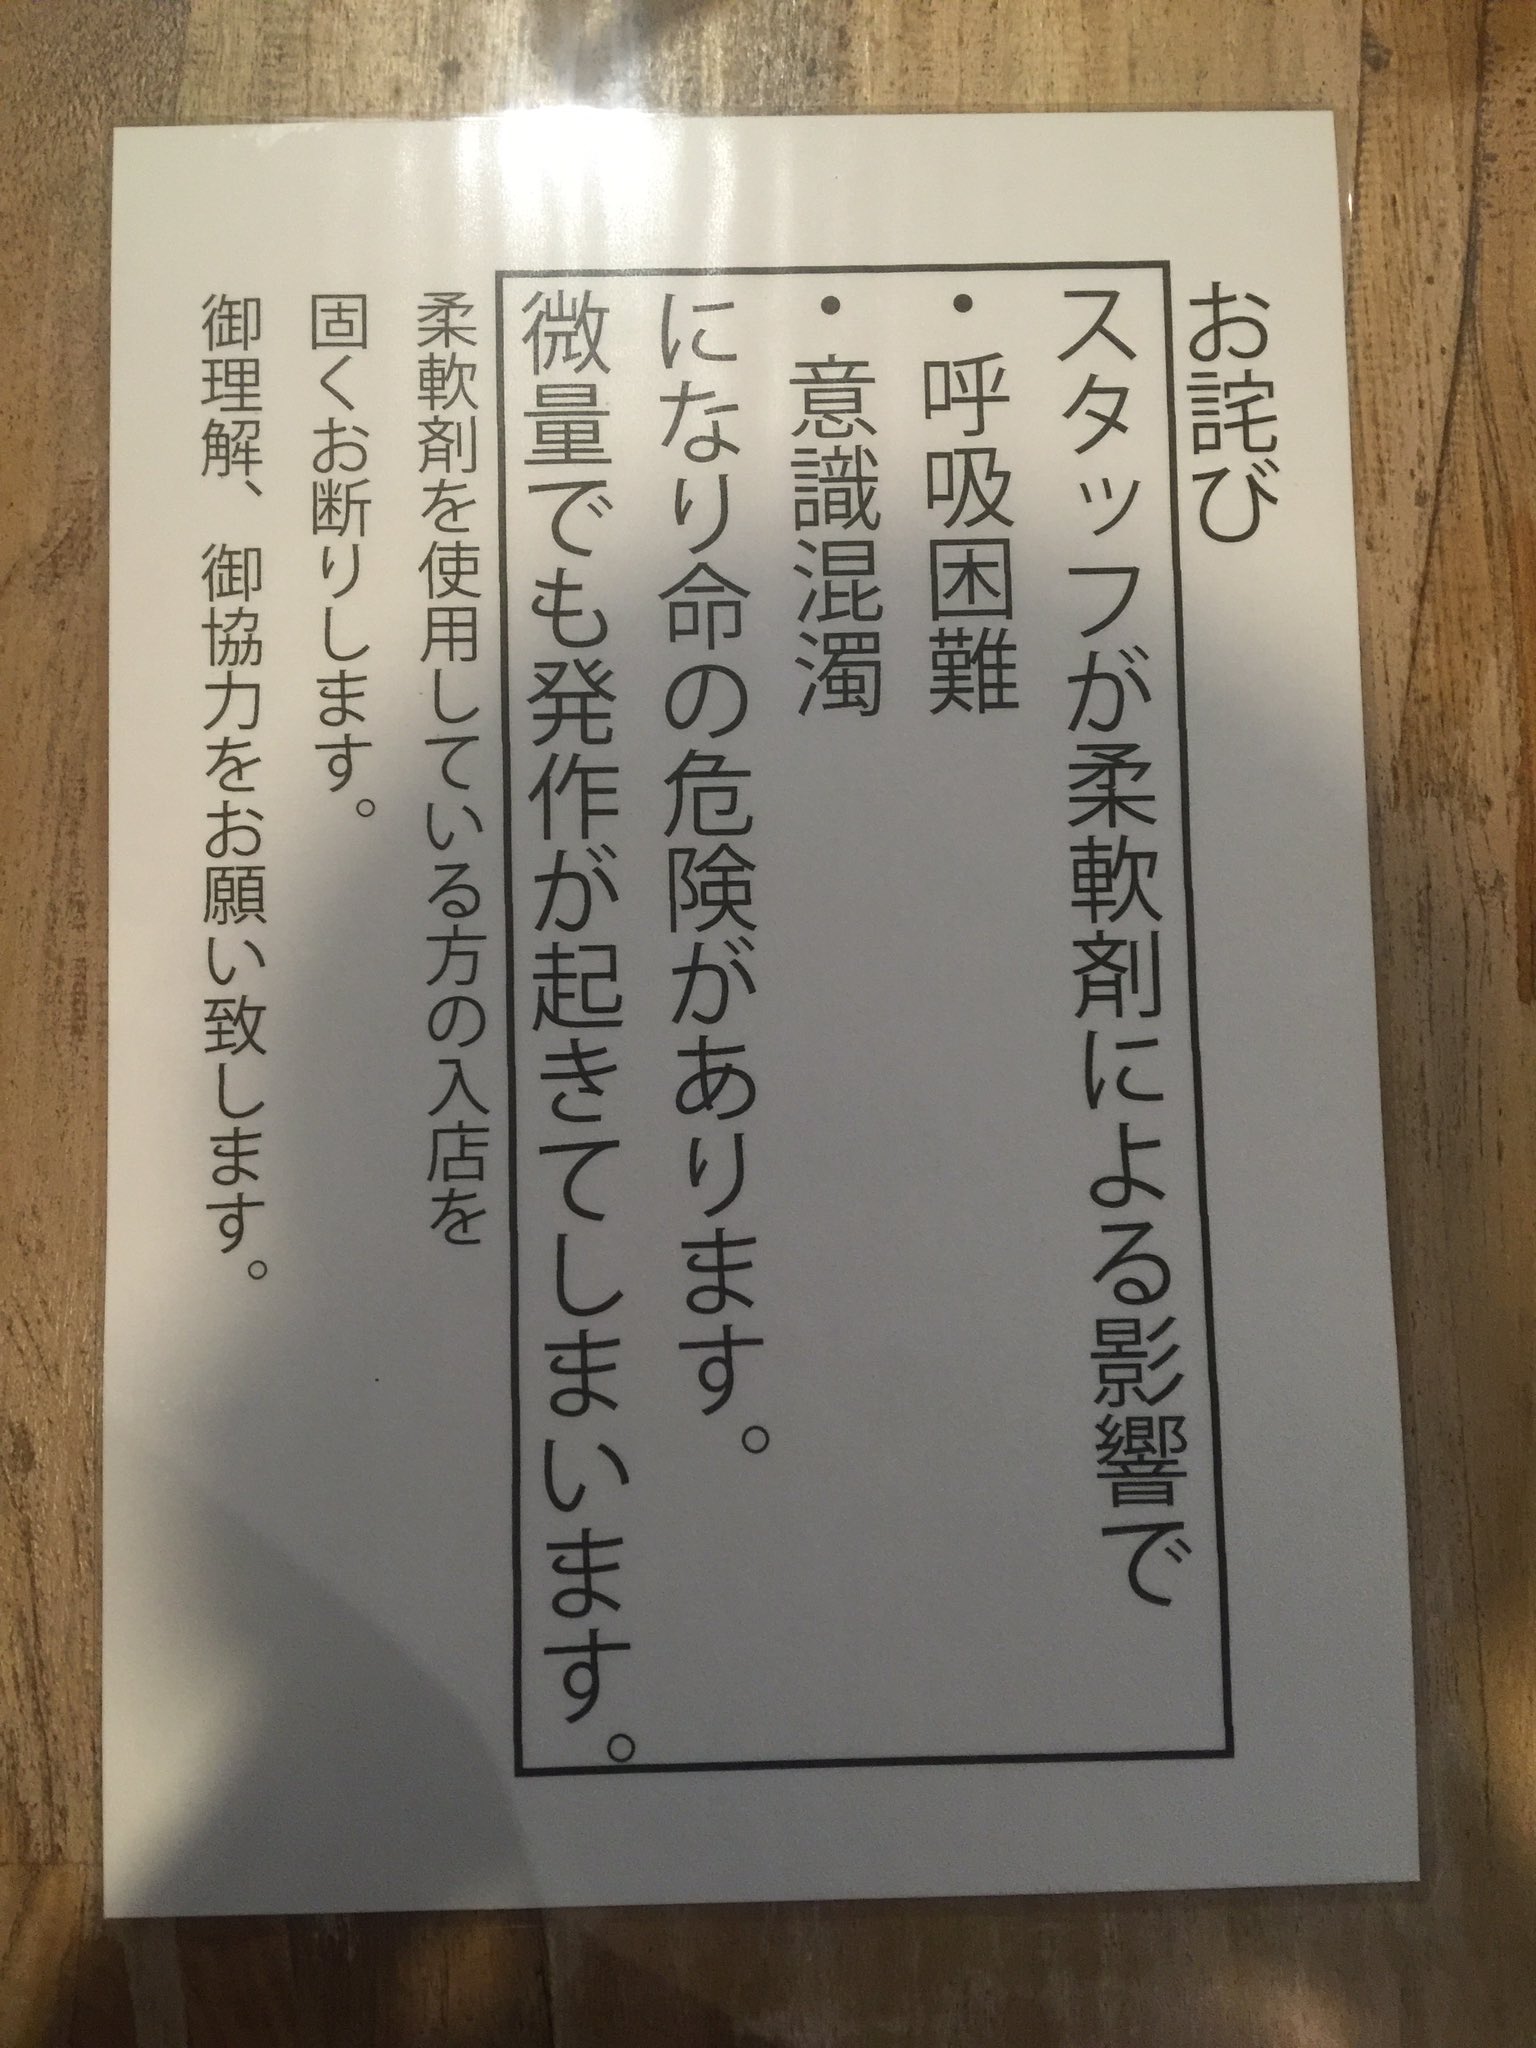 お詫び
スタッフが柔軟剤による影響で
・呼吸困難
・意識混濁
になり命の危険があります。
微量でも発作が起きてしまいます。
柔軟剤を使用している方の入店を
固くお断りします。
御理解、御協力をお願い致します。